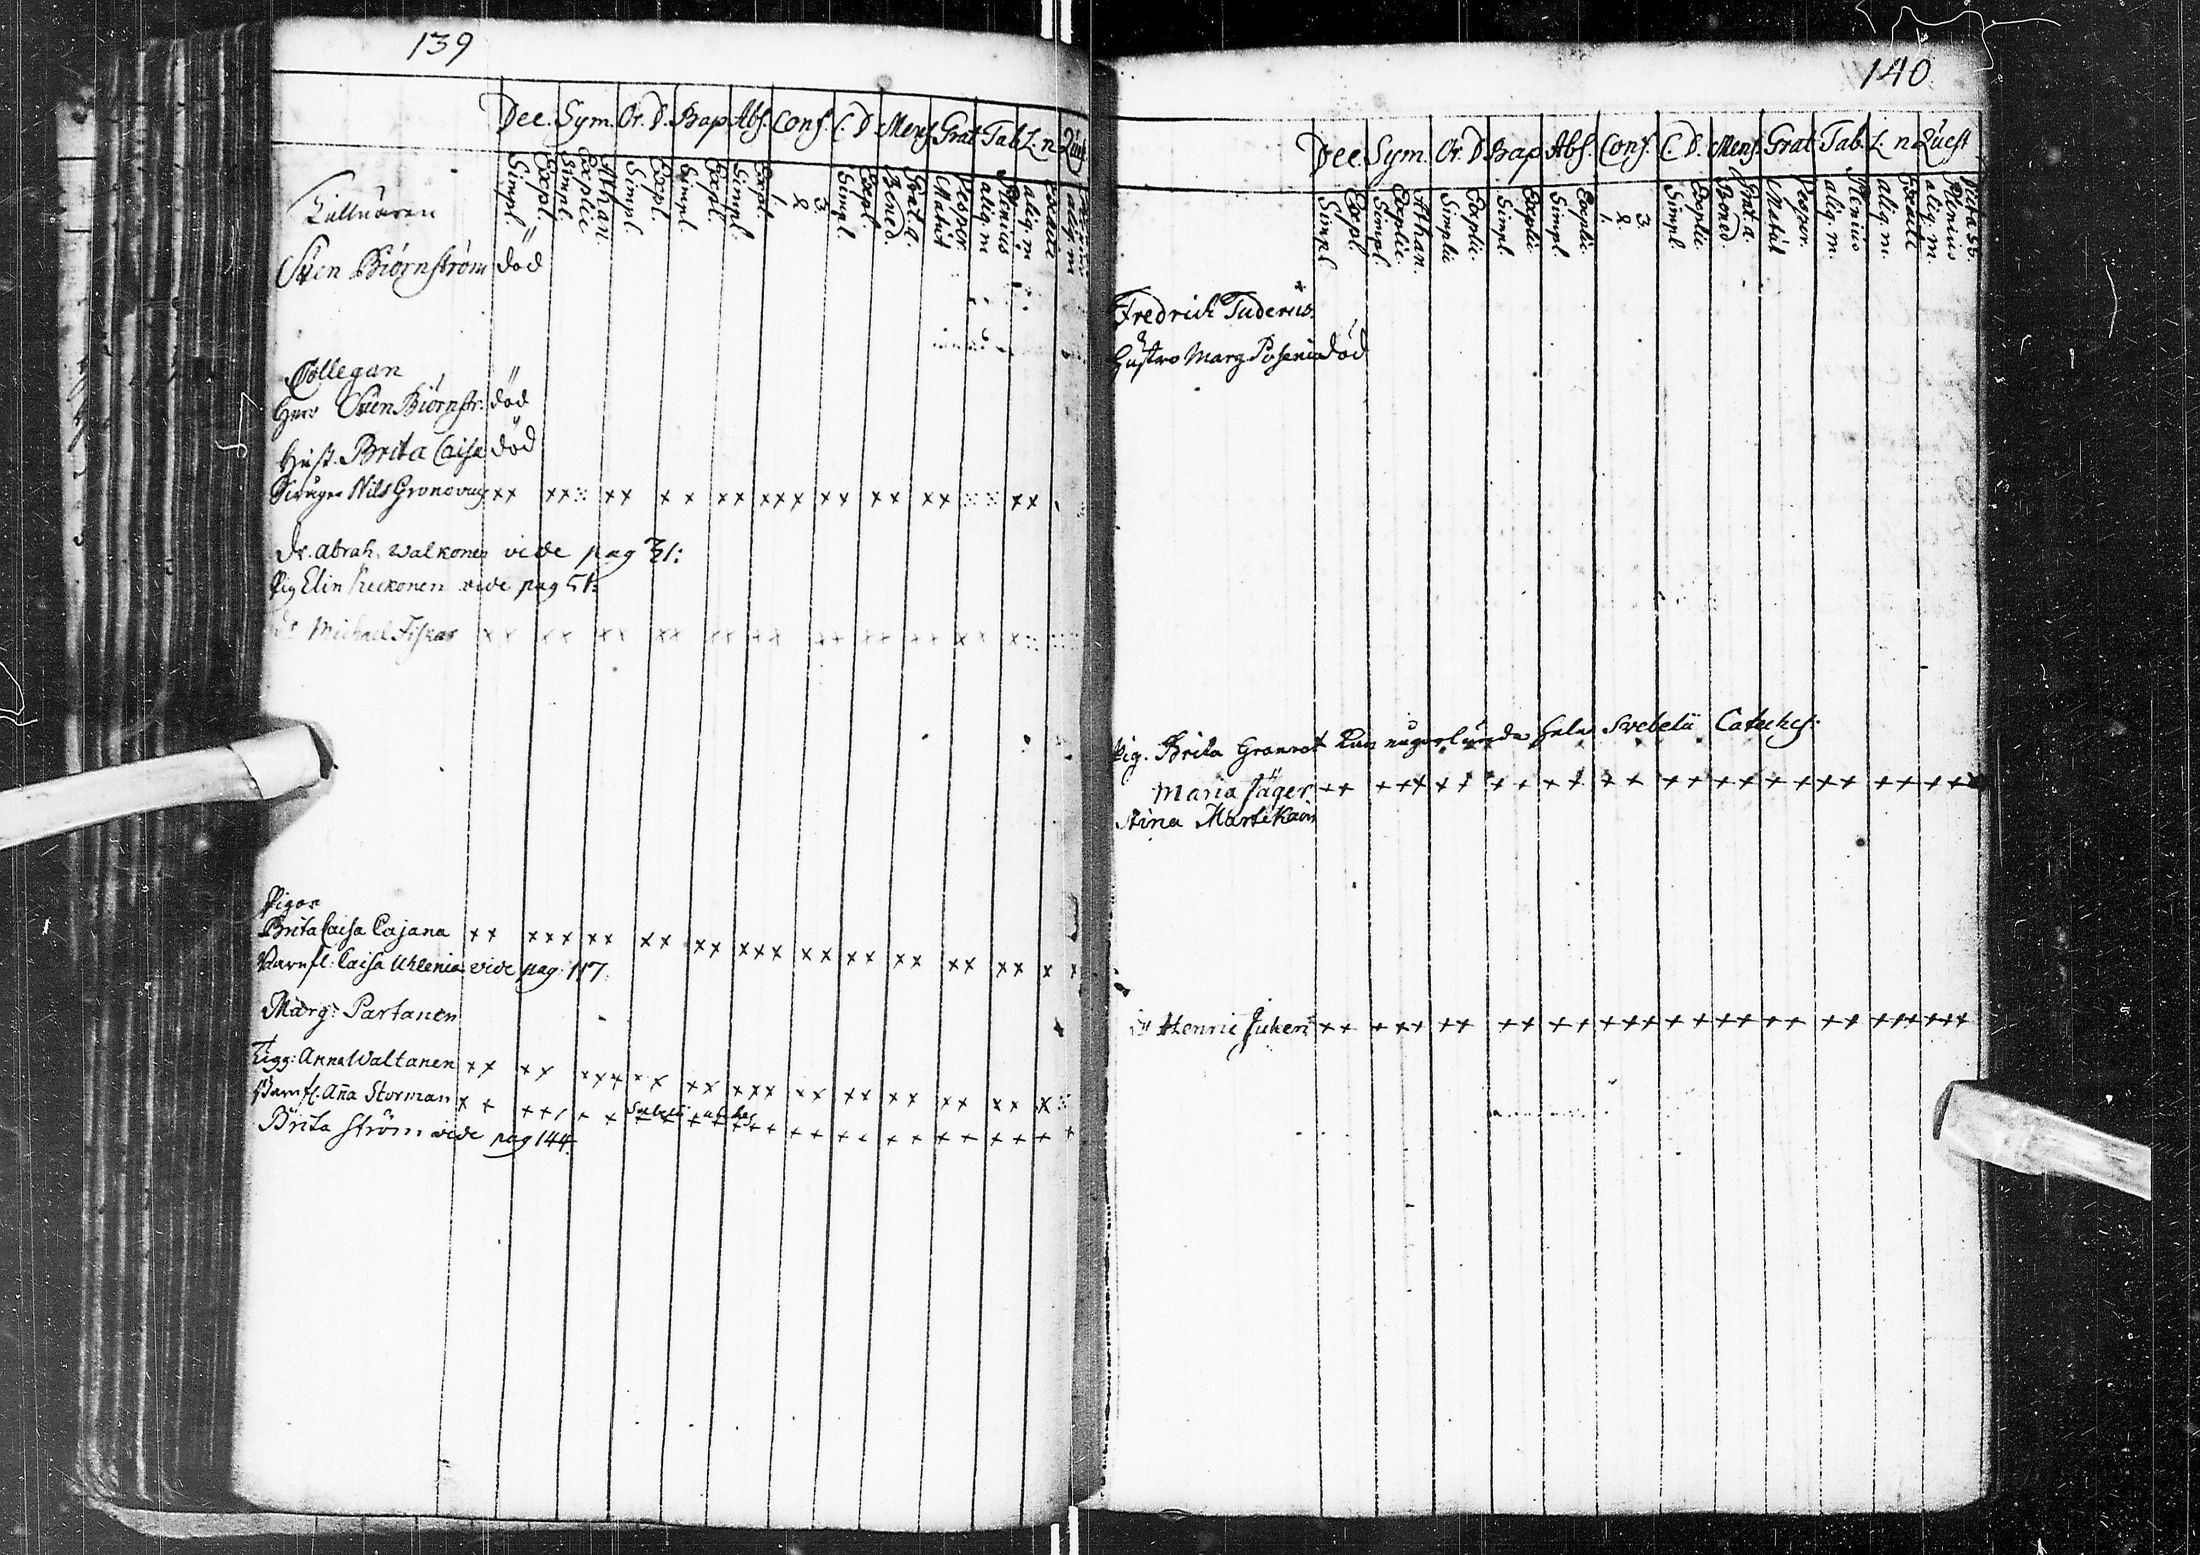 139
Dec. Sym. Or. D. Bap. Abs. Conf. C. D. Mens. Grat. Tab. L. n.
Simpl. Expl. Simpl Explic. Athan. Simpl Expl. Simpl Expl. Simpl. Expl. 1. 2 3 Simpl Expl. Bened. Grat. a. Matut Vesper. aliq. m Plenius aliq. m
Sven Biörnström död
Collegan
Herr Sven Biörnstr. död
Hust. Brita Caisa död
Nils Gronovius xx xx xx xx xx xxx xx xx xx xx
Dr. Abrah. Walkonen vide pag 31:
Pig Elin vide pag 51:
Dr Michael Fiskar xx xx xx xx xx xx xx xx xx xx x
Pigor
Brita Caisa Cajana xx xxx xx xx xx xxx xx xx xx xx xx x x
Jarnfl. Caisa Uhlenia vide pag. 117.
Marg: Partanen
Anna Waltanen xx xx xxx xx xx xxx xx xx xx xx xx x
Jarnfl. Aña Storman x x
Brita Ström vide pag 144.
140
Dec. Sym. Or. D Bap. Abs. Conf. C. D. Mens. Grat. Tab. L. n. Quest
Simpl. Expl. Simpl. Explic. Athan. Simplic Explic. Simpl. Explic. Simpl. Explic. 1. 2 3 Simpl. Explic Bened. Grat. a. Matut Vesper. aliq. m. Plenius aliq. m. Exacte aliq. m. Plenius
Fredrich Tuderus
Hustro Marg. död
Pig. Brita Granrot kan Svebelii Cateches:
Maria Jäger xx xxx xx xx xx xx xx xx xx xx xx xx
Stina Martikain
Dr Henric Juken xx xxx xx xx xx xxx xx xx xx xx xxx xxx